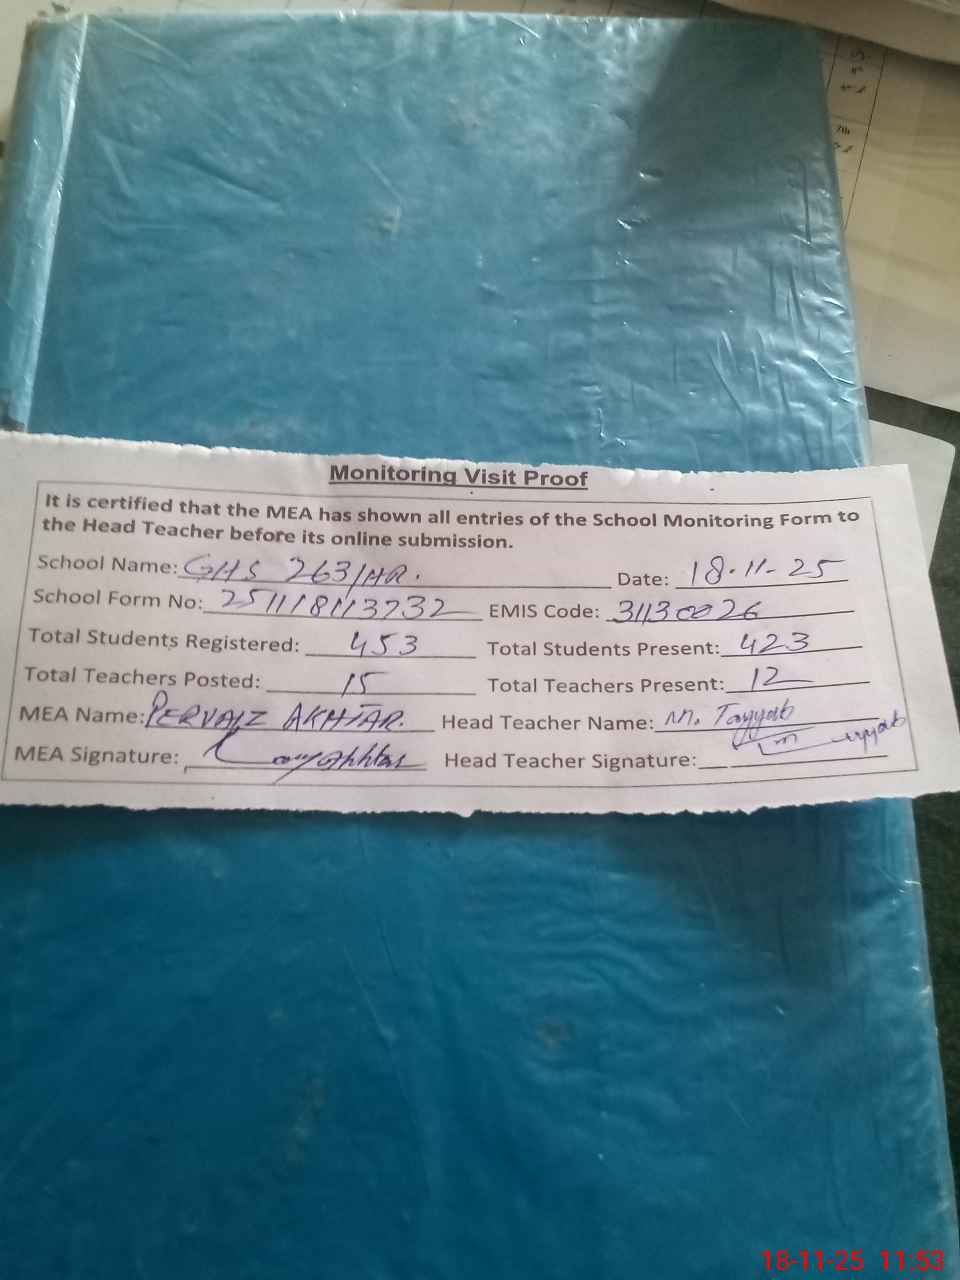 Monitoring Visit Proof
It is certified that the MEA has shown all entries of the School Monitoring Form to
the Head Teacher before its online submission.
School Name: GHS 263/HR. Date: 18-11-25
School Form No: 251118113732 EMIS Code: 31130026
Total Students Registered: 453 Total Students Present: 423
Total Teachers Posted: 15 Total Teachers Present: 12
MEA Name: PERVAIZ AKHTAR. Head Teacher Name: M. Tayyab
MEA Signature: Head Teacher Signature:
18-11-25 11:53